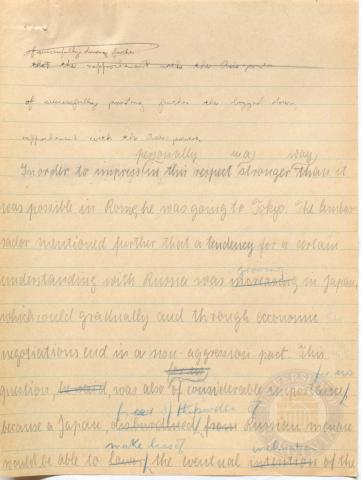 of successfully driving further
that the rapprochement with the Axis powers
of successfully pushing further the bogged down
rapprochement with the Axis powers,
personally in a way
In order to impress in this respect stronger than it
was possible in Rome, he was going to Tokyo. The Ambas-
sador mentioned further that a tendency for a certain
growing
understanding with Russia was increasing in Japan,
which could gradually and through economic
negotiations end in a non aggression pact. This
for us
question, he said, was also of considerable importance,
freed of the burden of
because a Japan, disburdened from Russian menace
make least inclination
would be able to lower the eventual intention of the